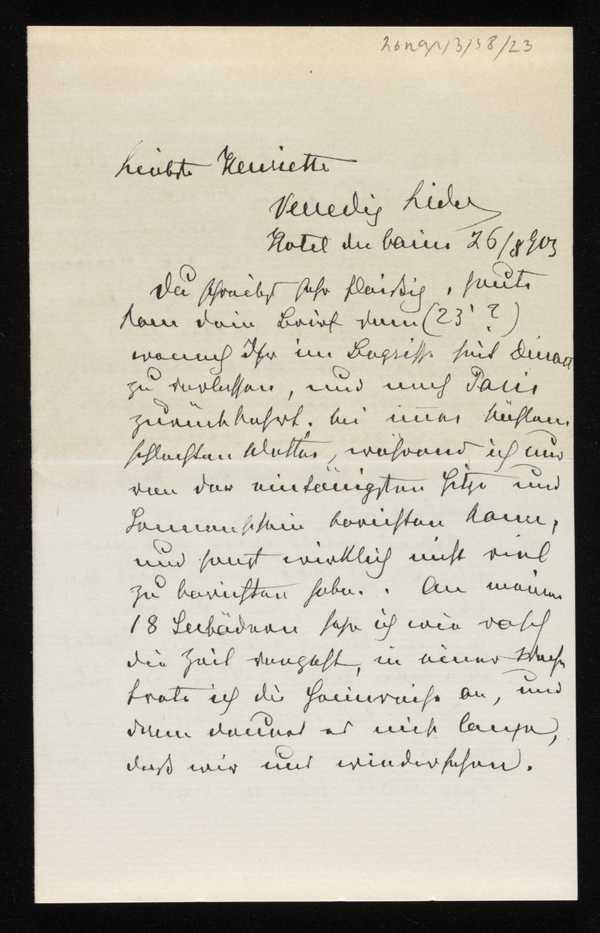 Liebste Henriette
Venedig Lido
Hotel des bains 26/8 903
Du schreibst sehr fleißig, heute
kam dein Brief vom (23 ?)
wonach Ihr im Begriffe seid Dinard
zu verlassen, und nach Paris
zurückkehrt. bei immer kühlem
schlechten Wetter, während ich nur
von der eintönigsten Hitze und
Sonnenschein berichten kann,
und sonst wirklich nicht viel
zu berichten habe. An meinen
18 Seebädern sehe ich wie rasch
die Zeit vergeht, in einer Woche
trete ich die Heimreise an, und
dann dauert es nicht lange,
daß wir uns wiedersehen.